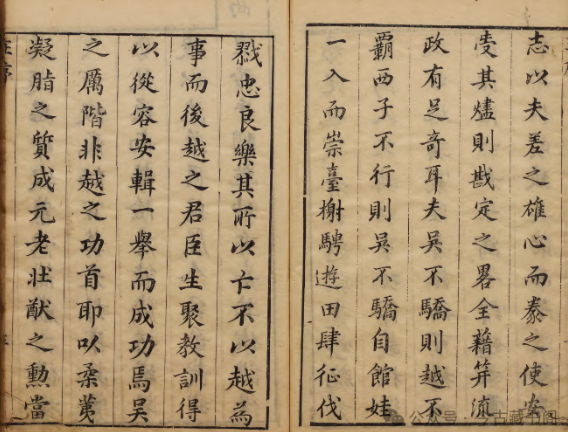 志以夫差之雄心而泰之使安
受其燼則戡定之畧全藉笄流
政有足奇耳夫吳不驕則越不
霸西子不行則吳不驕自館娃
一入而崇臺榭騁遊田肆征伐
戮忠良樂其所以亡不以越為
事而後越之君臣生聚教訓得
以從容安輯一舉而成功焉吳
之厲階非越之功首耶以柔荑
凝脂之質成元老壯猷之勳當
公众号·今古藏书阁